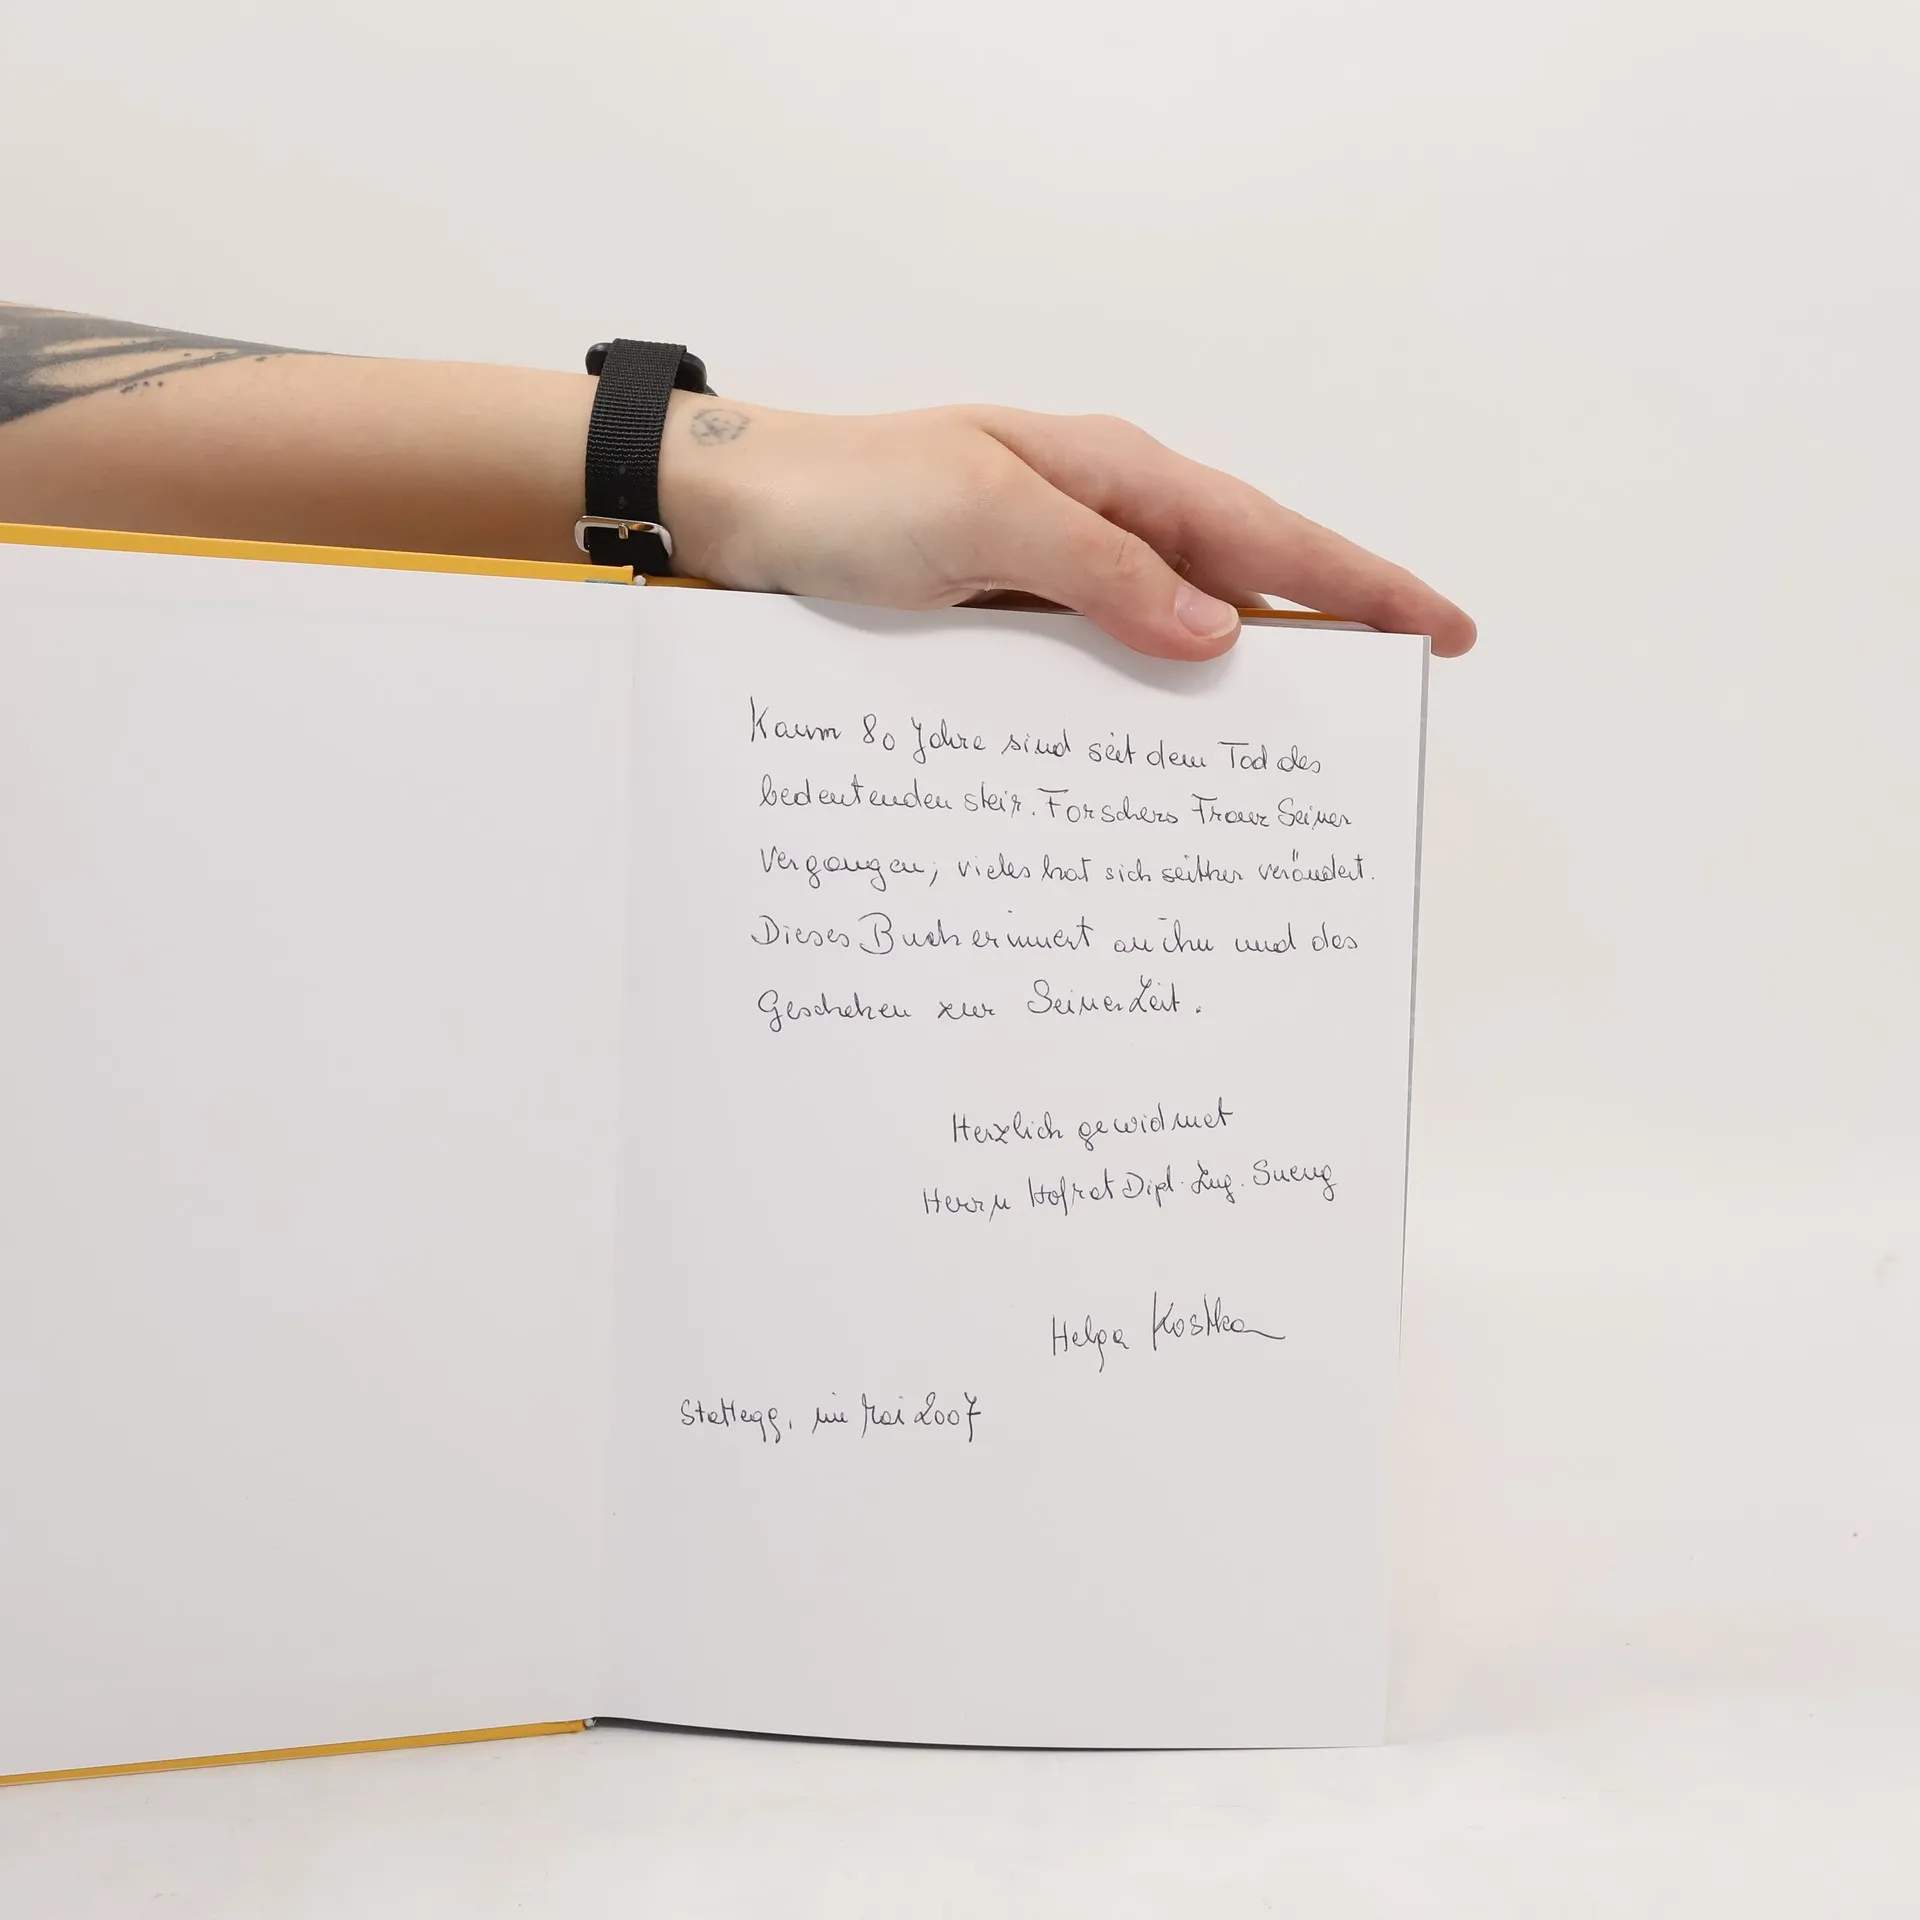 Kaum 80 Jahre sind seit dem Tod des
bedeutenden steir. Forschers Franz Seiner
vergangen; vieles hat sich seither verändert.
Dieses Buch erinnert an ihn und das
Geschehen zur Seiner Zeit.
Herzlich gewidmet
Herrn Hofrat Dipl. Ing.
Helga Kostka
Stattegg, im Mai 2007